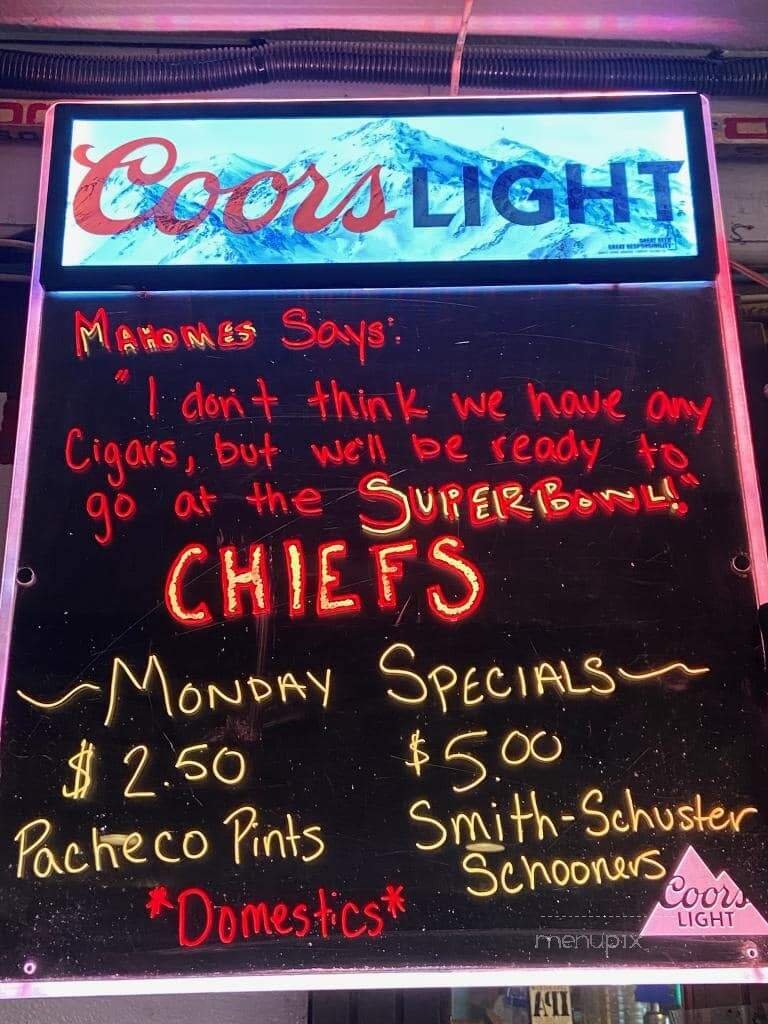 Coors LIGHT
GREAT BEER
GREAT RESPONSIBILITY
MAHOMES Says:
"I don't think we have any
Cigars, but we'll be ready to
go at the SUPERBOWL!"
CHIEFS
~MONDAY SPECIALS~
$2.50 $5.00
Pacheco Pints Smith-Schuster
Schooners
*Domestics*
Coors
LIGHT
menupix
IPA